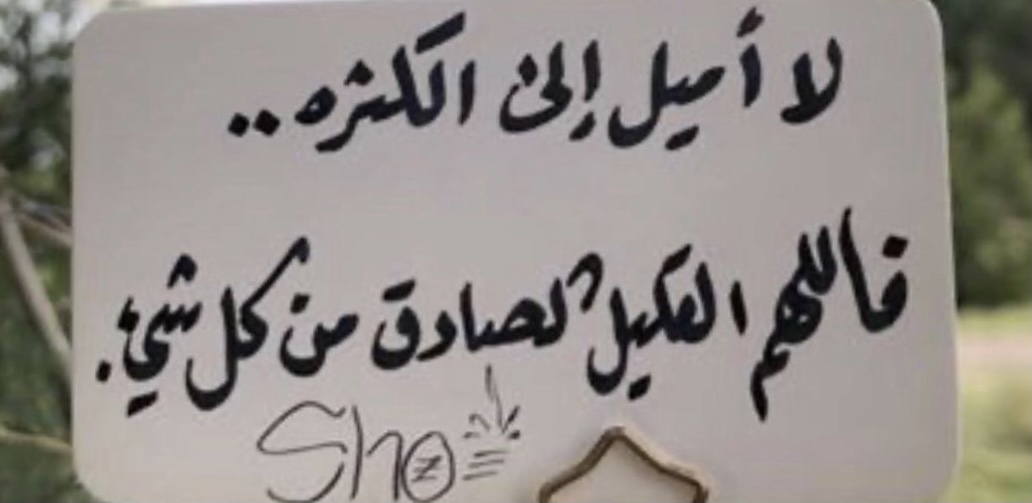 لا أميل إلى الكثره ..
فاللهم القليل الصادق من كل شيءٍ.
Sho